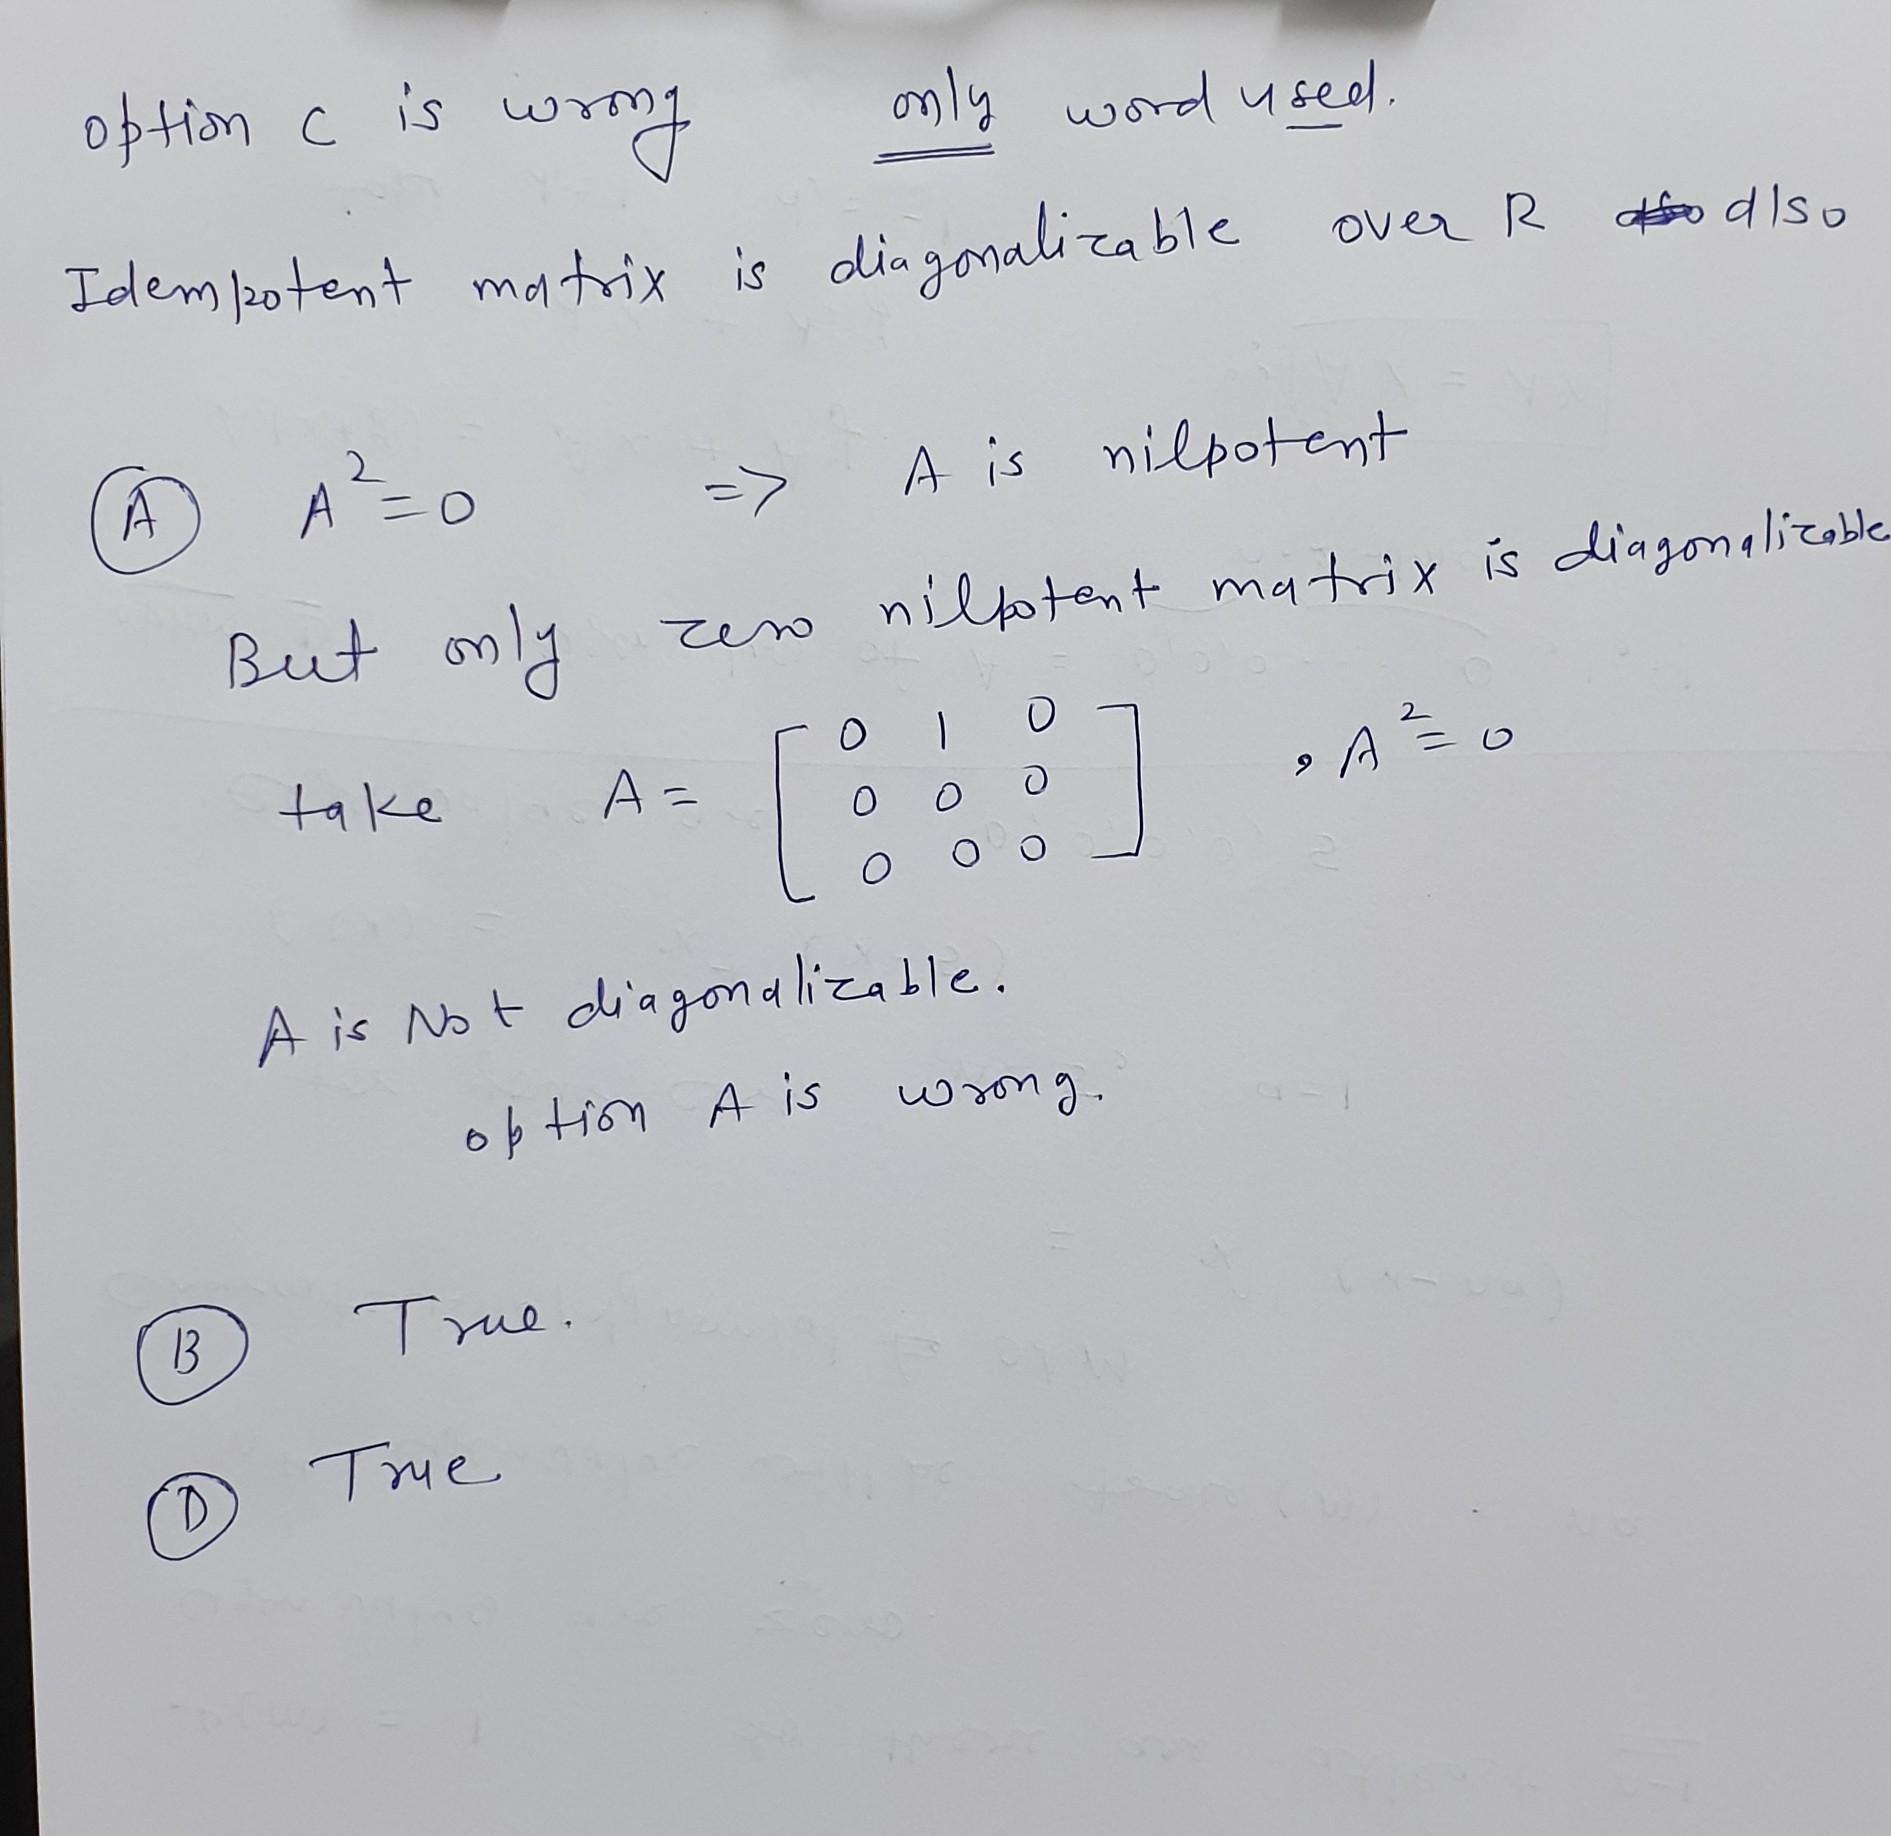 option c is wrong only word used.
Idempotent matrix is diagonalizable over R also
(A) A² = 0 => A is nilpotent
But only zero nilpotent matrix is diagonalizable
take A = [ 0 1 0 , A² = 0
0 0 0
0 0 0 ]
A is Not diagonalizable.
option A is wrong.
(B) True.
(D) True